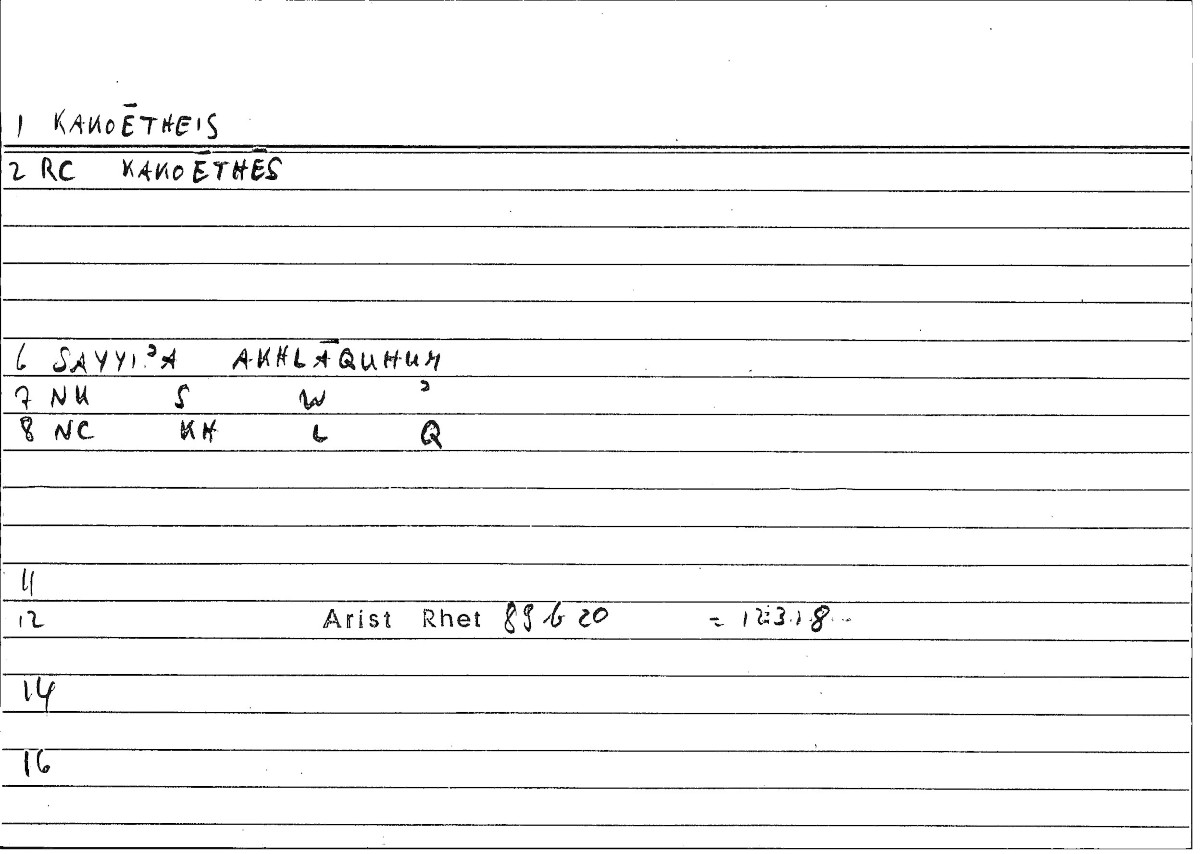 1 KAKOĒTHEIS
2 RC KAKOĒTHĒS
6 SAYYIʾA AKHLĀQUHUM
7 NK S W ʾ
8 NC KH L Q
11
12 Arist Rhet 89 b 20 = 123.18
14
16